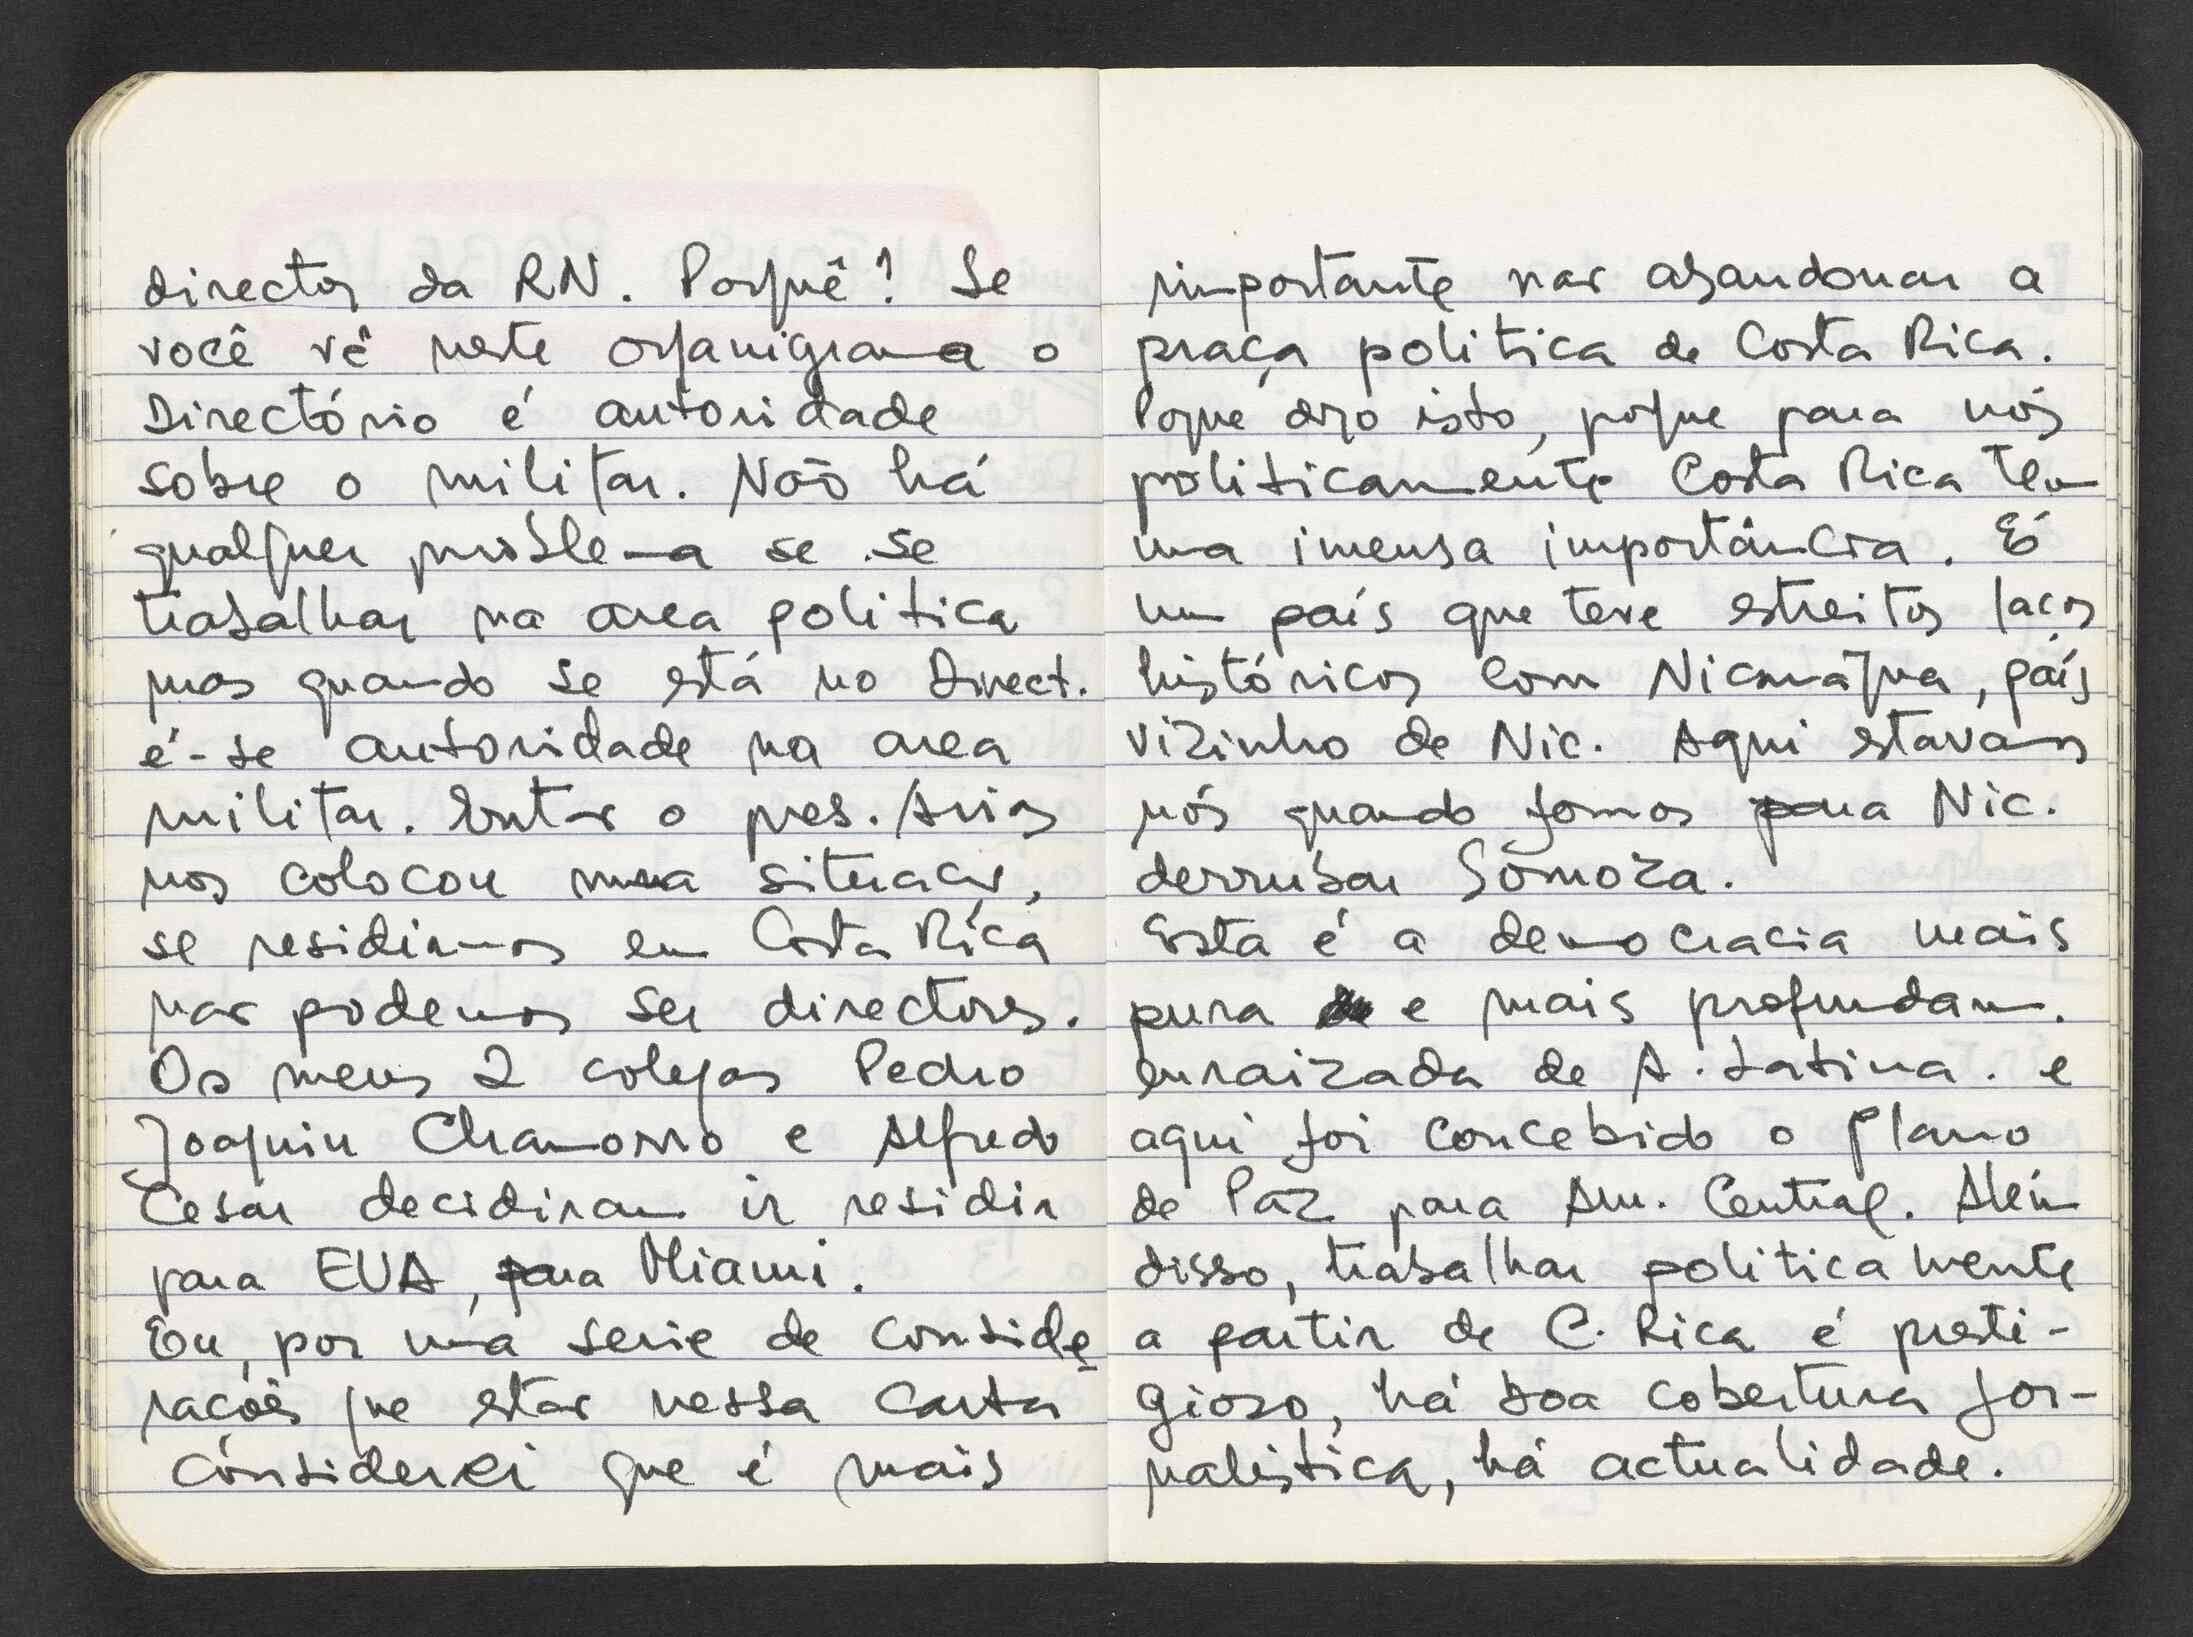 director da RN. Porquê? Se
você vê neste organigrama o
Directório é autoridade
sobre o militar. Não há
qualquer problema se se
trabalhar na area politica
mas quando se está no Direct.
é-se autoridade na area
militar. Entao o pres. Arias
nos colocou numa situacao,
se residirmos em Costa Rica
nao podemos ser directores.
Os meus 2 colegas Pedro
Joaquin Chamorro e Alfredo
Cesar decidiram ir residir
para EUA, para Miami.
Eu, por uma serie de conside
rações que estao nessa carta
considerei que é mais
importante nao abandonar a
praça politica de Costa Rica.
Porque digo isto, porque para nós
politicamente Costa Rica tem
uma imensa importância. É
um país que teve estreitos laços
históricos com Nicarágua, país
vizinho de Nic. Aqui estavamos
nós quando fomos para Nic.
derrubar Somoza.
Esta é a democracia mais
pura e mais profundam.
enraizada de A. Latina. e
aqui foi concebido o Plano
de Paz para Am. Central. Além
disso, trabalhar politicamente
a partir de C. Rica é presti-
gioso, há boa cobertura jor-
nalistica, há actualidade.